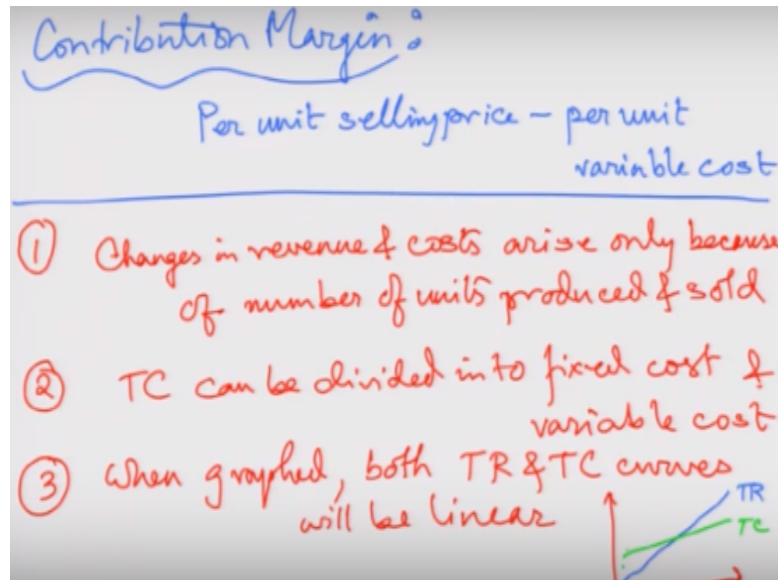 Contribution Margin:
Per unit selling price - per unit
variable cost
① Changes in revenue & costs arise only because
of number of units produced & sold
② TC can be divided into fixed cost &
variable cost
③ When graphed, both TR & TC curves
will be linear
TR
TC